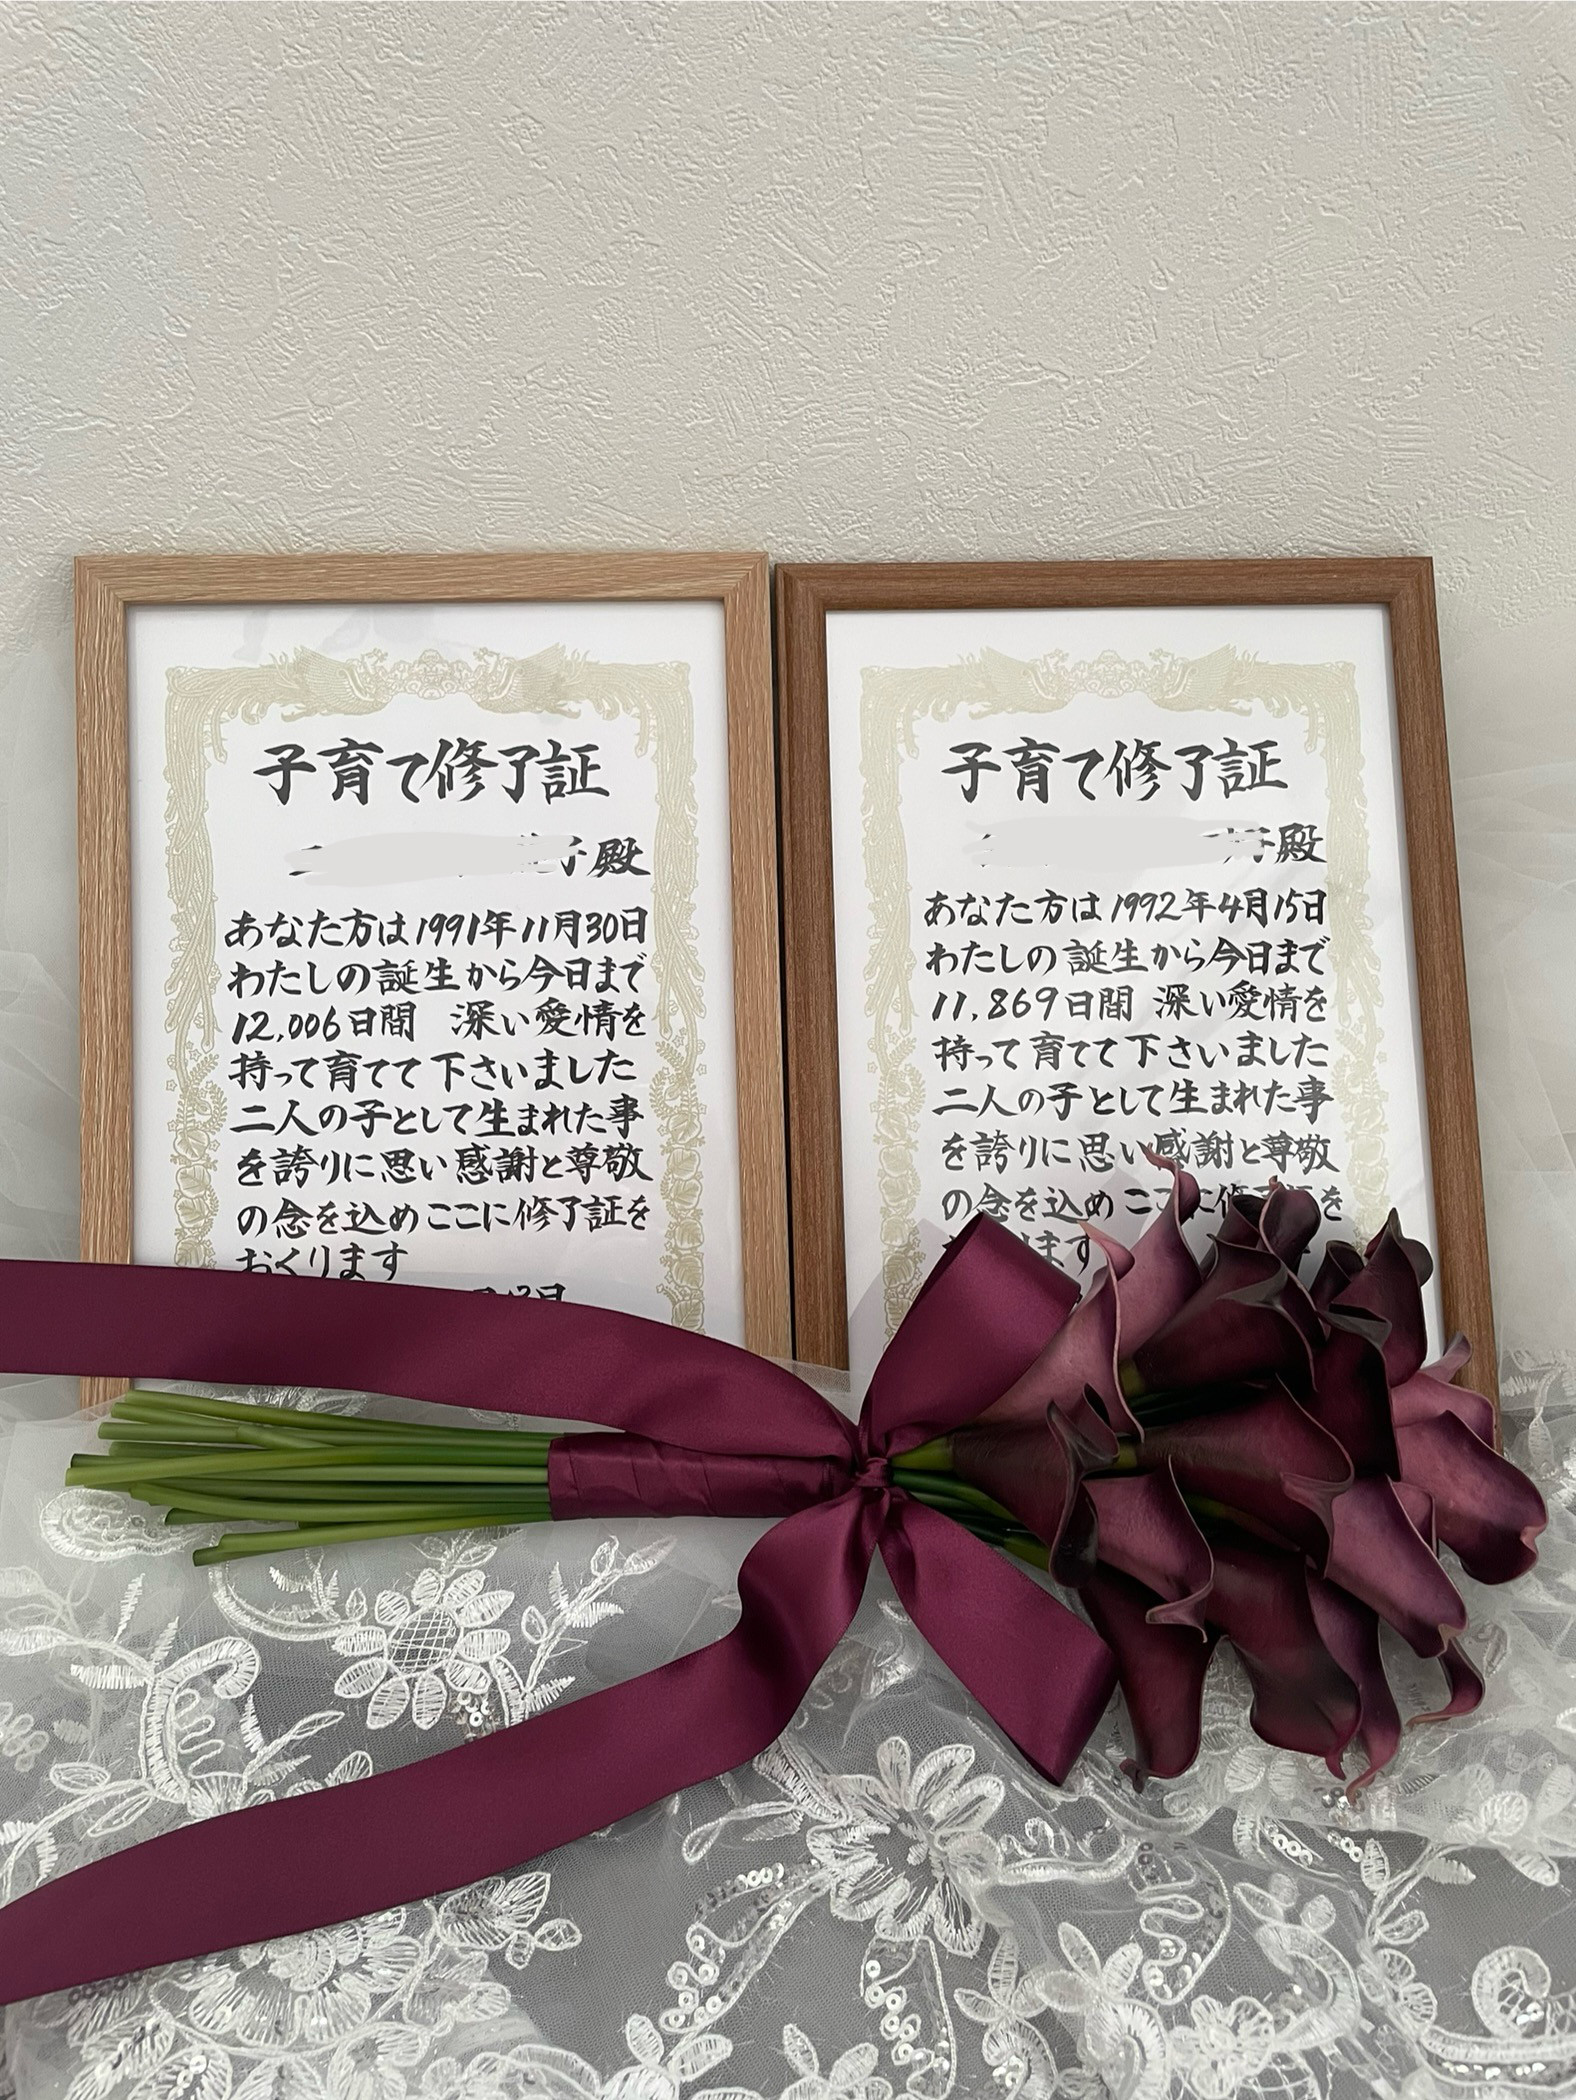 子育て修了証
子殿
あなた方は1991年11月30日
わたしの誕生から今日まで
12,006日間 深い愛情を
持って育てて下さいました
二人の子として生まれた事
を誇りに思い感謝と尊敬
の念を込めここに修了証を
おくります
子育て修了証
子殿
あなた方は1992年4月15日
わたしの誕生から今日まで
11,869日間 深い愛情を
持って育てて下さいました
二人の子として生まれた事
を誇りに思い感謝と尊敬
の念を込めここに修了証を
ます